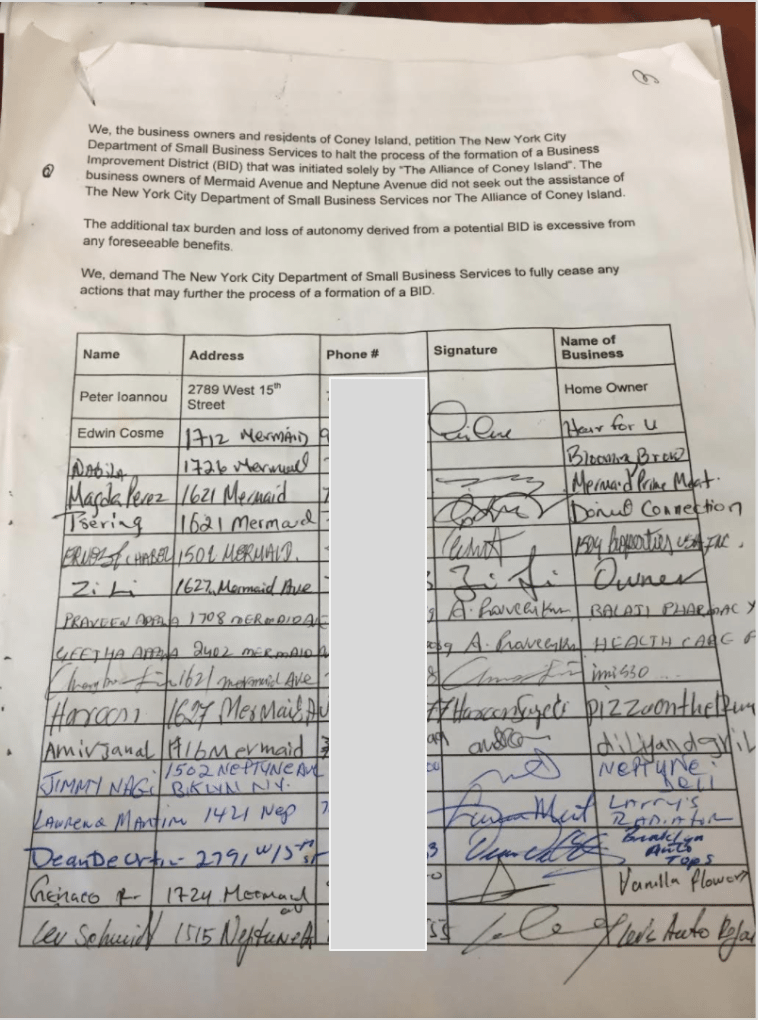 We, the business owners and residents of Coney Island, petition The New York City
Department of Small Business Services to halt the process of the formation of a Business
Improvement District (BID) that was initiated solely by "The Alliance of Coney Island". The
business owners of Mermaid Avenue and Neptune Avenue did not seek out the assistance of
The New York City Department of Small Business Services nor The Alliance of Coney Island.
The additional tax burden and loss of autonomy derived from a potential BID is excessive from
any foreseeable benefits.
We, demand The New York City Department of Small Business Services to fully cease any
actions that may further the process of a formation of a BID.
Name Address Phone # Signature Name of Business
Peter Ioannou 2789 West 15th Street Home Owner
Edwin Cosme 1712 Mermaid Hair for U
Nabila 1726 Mermaid
Magda Perez 1621 Mermaid Mermaid Prime Meat.
Tsering 1621 Mermaid Donut Connection
1501 MERMAID.
Zi Li 1627 Mermaid Ave Zi Li Owner
PRAVEEN 1708 MERMAID A. Praveenkum BALAJI PHARMACY
GEETHA 2402 MERMAID A. Praveenku HEALTH CARE
1621 mermaid Ave imisso
Haroon 1627 MerMaid Av pizzaontheRun
Amir Jamal 1416 Mermaid
JIMMY NAGI 1502 NEPTUNE AVE BKLYN NY. NEPTUNE DELI
1421 Nep LARRY'S RADIATOR
2791 W 15th St Brooklyn Auto Tops
Genaro R. 1724 Mermaid av Vanilla flowers
Lev Schmidt 1515 Neptune A Lev's Auto Repai